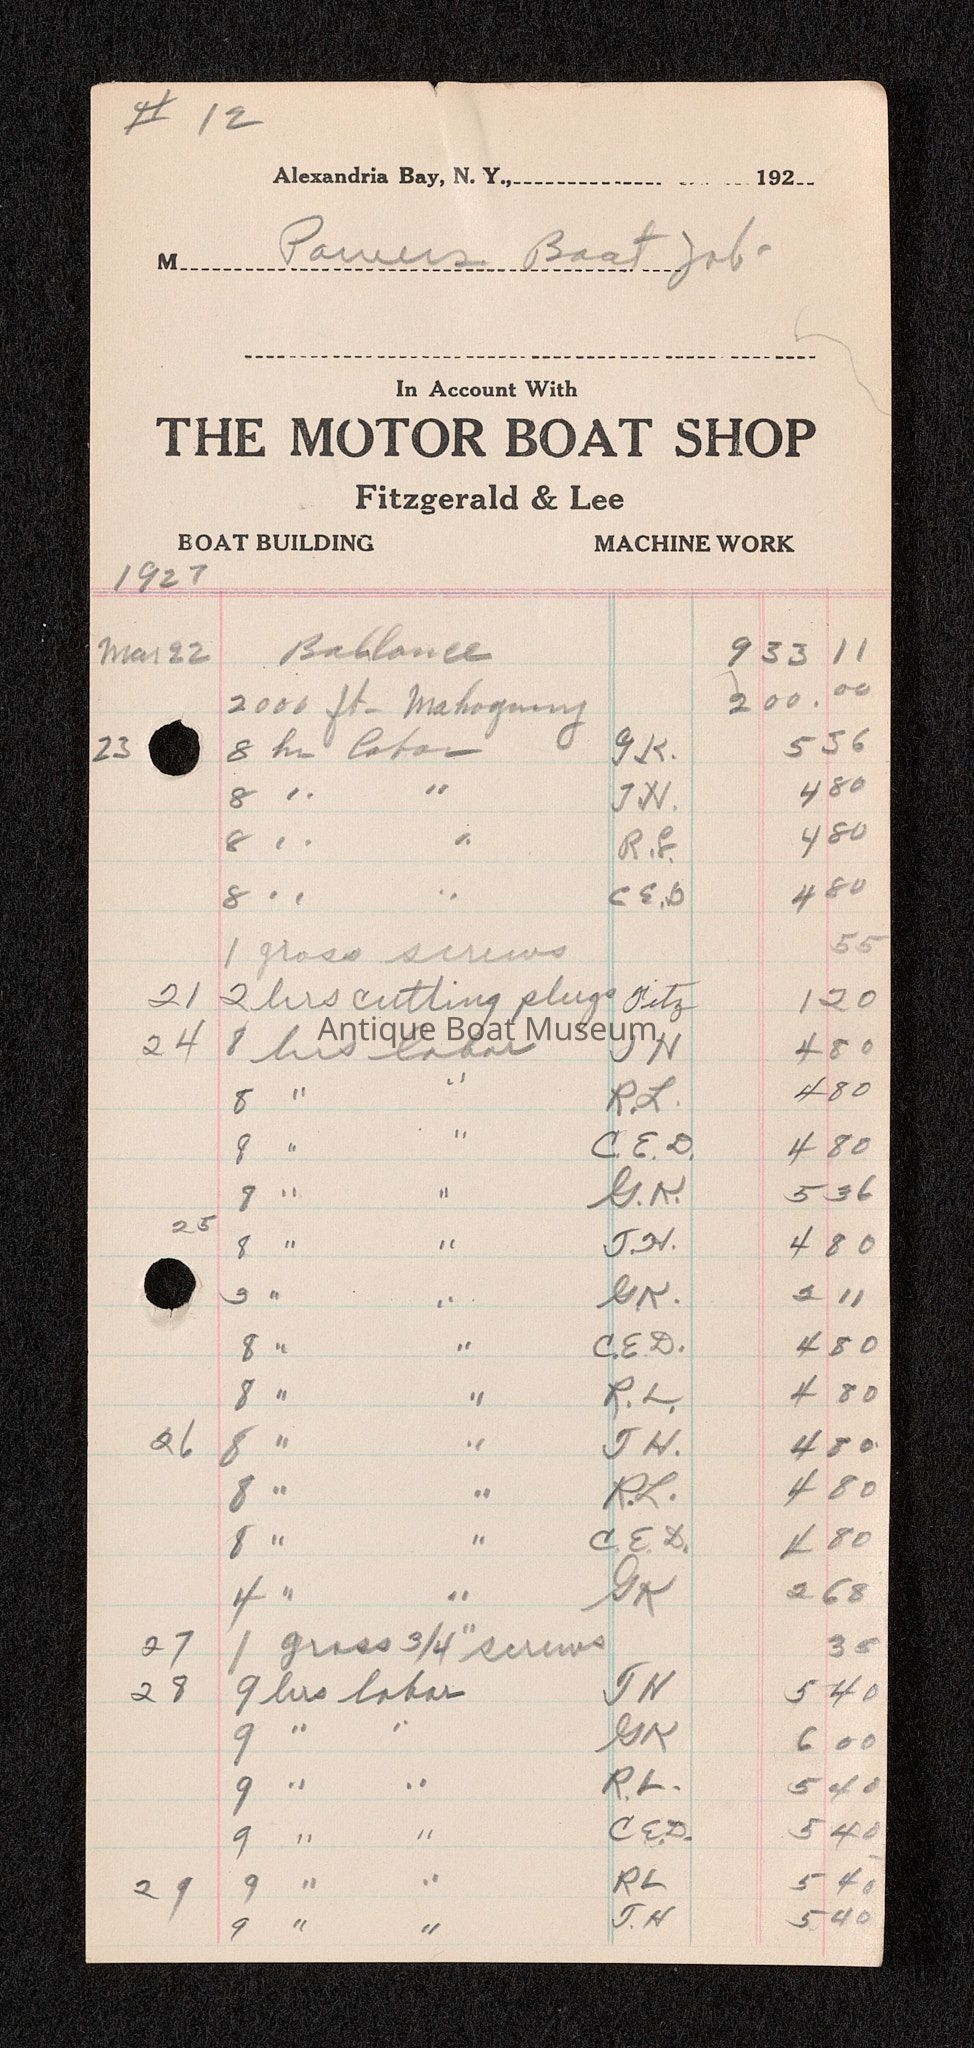 # 12
Alexandria Bay, N. Y., 192
M Powers Boat Job
In Account With
THE MOTOR BOAT SHOP
Fitzgerald & Lee
BOAT BUILDING MACHINE WORK
1927
Mar 22 Ballance 933 11
2000 ft Mahogany 200.00
23 8 hr labor G.K. 5 36
8 " " J.H. 4 80
8 " " R.L. 4 80
8 " " C.E.D 4 80
1 gross screws 55
21 2 hrs cutting plugs Fitz 1 20
Antique Boat Museum
24 8 hrs labor J H 4 80
8 " " R.L. 4 80
8 " " C.E.D. 4 80
8 " " G.K. 5 36
25 8 " " J.H. 4 80
3 " " G.K. 2 11
8 " " C.E.D. 4 80
8 " " R.L. 4 80
26 8 " " J H. 4 80
8 " " R.L. 4 80
8 " " C.E.D. 4 80
4 " " GK 2 68
27 1 gross 3/4" screws 35
28 9 hrs labor J H 5 40
9 " " GK 6 00
9 " " R.L. 5 40
9 " " C.E.D. 5 40
29 9 " " RL 5 40
9 " " J.H 5 40